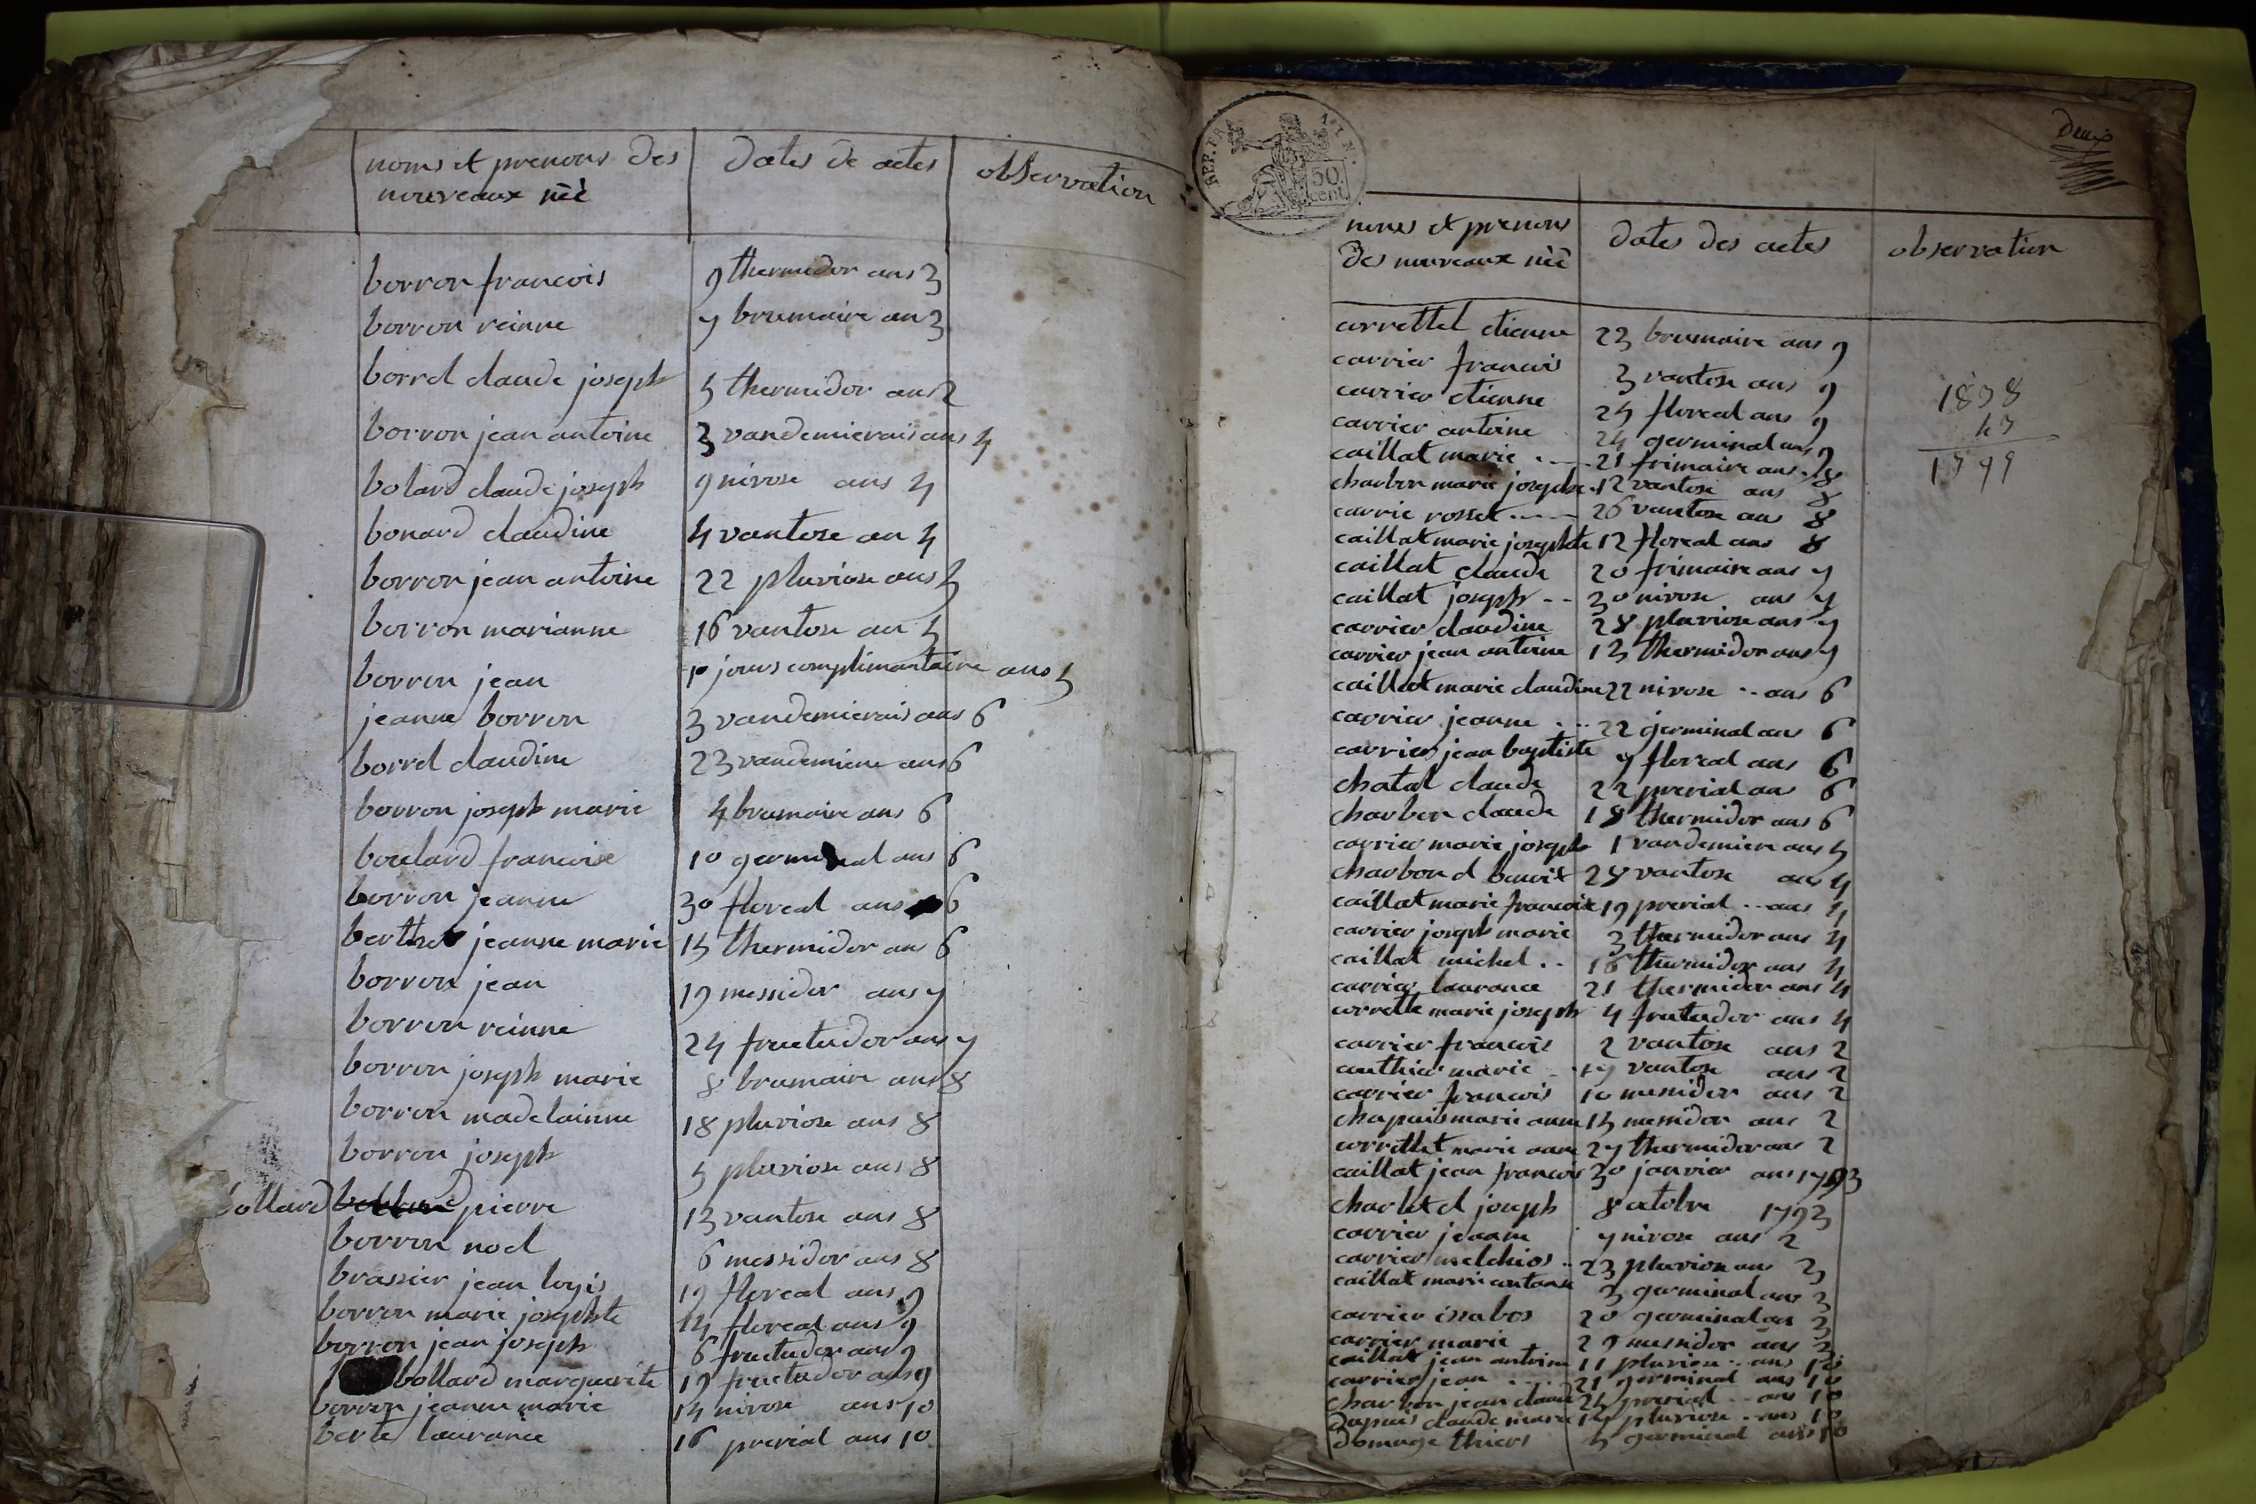 noms et prenons des
nouveaux néé
dates de actes
observation
borron francois 9 thermidor ans 3
borron reinne 7 brumaire an 3
borrel claude joseph 5 thermidor an 2
borron jean antoine 3 vandemierais ans 4
bolard claude joseph 9 nivose ans 4
bonard claudine 4 vantose an 4
borron jean antoine 22 pluviose ans 5
borron marianne 16 vantose an 5
borron jean jours complimantaire ans 5
jeanne borron 3 vandemierais ans 6
borrel claudine 23 vandemiere ans 6
borron joseph marie 4 brumaire ans 6
boulard francoise 10 germinal ans 6
borron jeanne 30 floreal ans 6
berthet jeanne marie 15 thermidor ans 6
borron jean 19 messidor ans 7
borron reinne 24 fructudor ans 7
borron joseph marie 8 brumaire ans 8
borron madelainne 18 pluviose ans 8
borron joseph 5 pluviose ans 8
bollard pierre 13 vantose ans 8
borron noel 6 messidor ans 8
brassier jean loyis 19 floreal ans 9
borron marie josephte 14 floreal ans 9
borron jean joseph 6 fructudor ans 9
bollard marguerite 19 fructudor ans 9
borron jeanne marie 14 nivose ans 10
berte laurance 16 prerial ans 10
REP. FRA
50 cent.
deux
noms et prenons
des nouveaux néé
dates des actes
observation
correttel etienne 23 brumaire ans 9
carrier francois 3 vantose ans 9
carrier etienne 25 floreal ans 9
carrier antoine 24 germinal ans 9
caillat marie 21 frimaire ans 8
charbon marie josephe 12 vantose ans 8
carrie rosset 26 vantose ans 8
caillat marie josephte 12 floreal ans 8
caillat claude 20 frimaire ans 7
caillat joseph 30 nivose ans 7
carrier claudine 28 pluviose ans 7
carrier jean antoine 13 thermidor ans 7
caillat marie claudine 22 nivose ans 6
carrier jeanne 22 germinal ans 6
carrier jean baptiste 7 floreal ans 6
chatal claude 22 prerial ans 6
charbon claude 18 thermidor ans 6
carrier marie joseph 1 vandemiere ans 5
charbond benoit 28 vantose ans 4
caillat marie francoise 19 prerial ans 4
carrier joseph marie 3 thermidor ans 4
caillat michel 16 thermidor ans 4
carrier laurance 21 thermidor ans 4
corrette marie joseph 4 frutudor ans 4
carrier francois 2 vantose ans 2
authier marie 17 vantose ans 2
carrier francois 10 messidor ans 2
chapuis marie anne 15 messidor ans 2
correttet marie anne 27 thermidor ans 2
caillat jean francois 30 janvier ans 1793
charletel joseph 8 octobre 1793
carrier jeanne 7 nivose ans 2
carrier melchios 23 pluviose ans 3
caillat marie 3 germinal ans 3
carrier issabos 20 germinal an 3
carrier marie 29 messidor ans 3
caillat jean antoine 11 pluviose ans 10
carrier jean 21 germinal ans 10
charbon jean claude 25 prerial ans 10
dupuis claude marie 14 pluviose ans 10
domage thiers 5 germinal ans 10
1838
1799